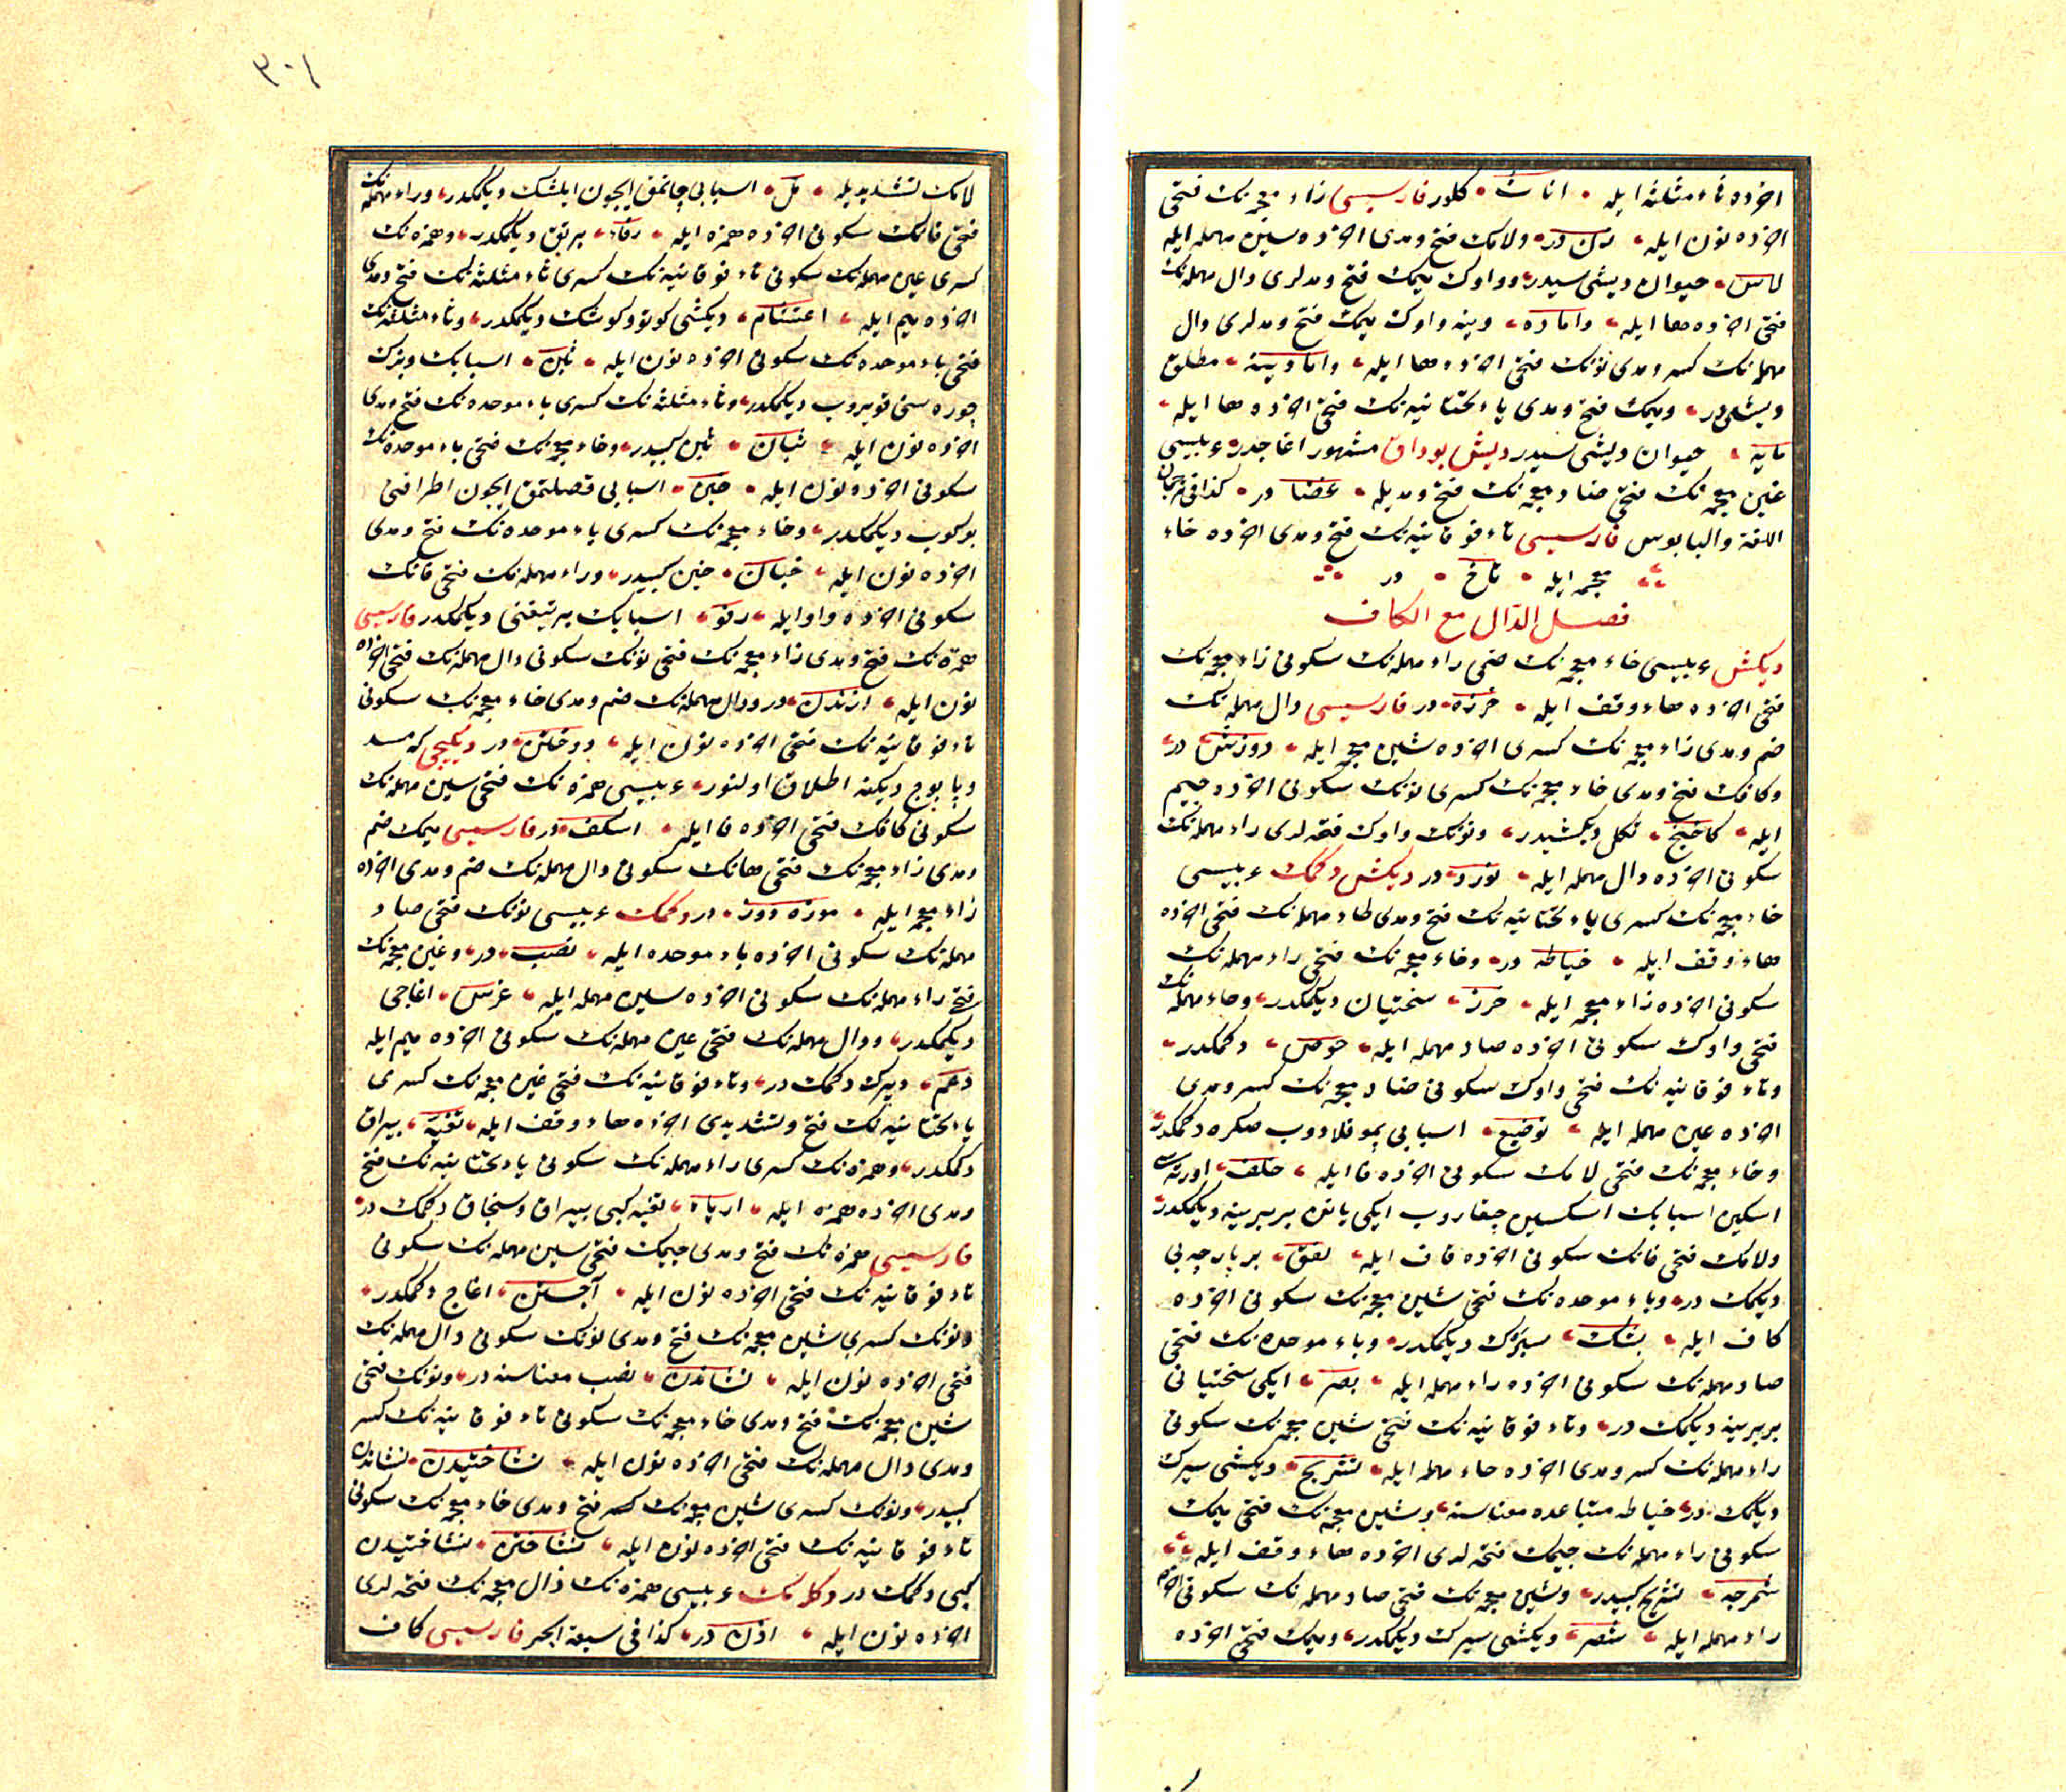 اخرده ثاء مثلثه ایله اناث كلور فارسیسی زاء معجمه‌نك فتحی
اخرده نون ایله زن در ولامك فتح ومدی اخرده سین مهمله ایله
لاس حیوان دیشی سیدر وواوك میمك فتح ومدلری دال مهمله‌نك
فتحی اخرده ها ایله واماده وینه واوك میمك فتح ومدلری دال
مهمله‌نك كسر ومدی نونك فتحی اخرده ها ایله وامادینه مطلق
دیشی در ومیمك فتح ومدی یاء تحتانیه‌نك فتحی اخرده ها ایله
مایه حیوان دیشی سیدر دیش بوداق مشهور اغاجدر عربیسی
غین معجمه‌نك فتحی ضاد معجمه‌نك فتح ومدیله غضا در كذا فی ترجمان
اللغة والبابوس فارسیسی تاء فوقانیه‌نك فتح ومدی اخرده خاء
معجمه ایله تاخ در
فصل الدال مع الكاف
دیكش عربیسی خاء معجمه‌نك ضمی راء مهمله‌نك سكونی زاء معجمه‌نك
فتحی اخرده هاء وقف ایله خرزه در فارسیسی دال مهمله‌نك
ضم ومدی زاء معجمه‌نك كسری اخرده شین معجمه ایله دوزش در
وكافك فتح ومدی خاء معجمه‌نك كسری نونك سكونی اخرده جیم
ایله كاخنج تكل دیكشیدر ونونك واوك فتحه‌لری راء مهمله‌نك
سكونی اخرده دال مهمله ایله نورد در دیكش دكمك عربیسی
خاء معجمه‌نك كسری یاء تحتانیه‌نك فتح ومدی طاء مهمله‌نك فتحی اخرده
هاء وقف ایله خیاطه در وخاء معجمه‌نك فتحی راء مهمله‌نك
سكونی اخرده زاء معجمه ایله خرز سختیان دیكمكدر وحاء مهمله‌نك
فتحی واوك سكونی اخرده صاد مهمله ایله حوص دكمكدر
وتاء فوقانیه‌نك فتحی واوك سكونی ضاد معجمه‌نك كسر ومدی
اخرده عین مهمله ایله توضیع اسبابی پموقلادوب صكره دكمكدر
وخاء معجمه‌نك فتحی لامك سكونی اخرده فا ایله خلف اورته‌سی
اسكین اسبابك اسكسین چقاروب ایكی یانن بربرینه دیكمكدر
ولامك فتحی فانك سكونی اخرده قاف ایله لفق بر پارچه‌یی
دیكمك در وباء موحده‌نك فتحی شین معجمه‌نك سكونی اخرده
كاف ایله بشك سیرك دیكمكدر وباء موحده‌نك فتحی
صاد مهمله‌نك سكونی اخرده راء مهمله ایله بصر ایكی سختیانی
بربرینه دیكمك در وتاء فوقانیه‌نك فتحی شین معجمه‌نك سكونی
راء مهمله‌نك كسر ومدی اخرده حاء مهمله ایله تشریح دیكشی سیرك
دیكمك در خیاطه متباعده معناسنه وشین معجمه‌نك فتحی میمك
سكونی راء مهمله‌نك جیمك فتحه‌لری اخرده هاء وقف ایله
شمرجه تشریح كبیدر وشین معجمه‌نك فتحی صاد مهمله‌نك سكونی اخرده
راء مهمله ایله شصر دیكشی سیرك دیكمكدر ومیمك فتحی اخرده
٣٠١
لامك تشدیدیله مل اسبابی چاتمق ایچون ایلشك دیكمكدر وراء مهمله‌نك
فتحی فانك سكونی اخرده همزه ایله رفاء یرتق دیكمكدر وهمزه‌نك
كسری عین مهمله‌نك سكونی تاء فوقانیه‌نك كسری ثاء مثلثه‌نك فتح ومدی
اخرده میم ایله اعتثام دیكشی كوتو وكوشك دیكمكدر وثاء مثلثه‌نك
فتحی باء موحده‌نك سكونی اخرده نون ایله ثبن اسبابك وبزك
چوره‌سنی قویروب دیكمكدر وثاء مثلثه‌نك كسری باء موحده‌نك فتح ومدی
اخرده نون ایله ثبان ثبن كبیدر وخاء معجمه‌نك فتحی باء موحده‌نك
سكونی اخرده نون ایله خبن اسبابی قصلتمق ایچون اطرافنی
بوكوب دیكمكدر وخاء معجمه‌نك كسری باء موحده‌نك فتح ومدی
اخرده نون ایله خبان خبن كبیدر وراء مهمله‌نك فتحی فانك
سكونی اخرده واو ایله رفو اسبابك یرتیغنی دیكمكدر فارسیسی
همزه‌نك فتح ومدی زاء معجمه‌نك فتحی نونك سكونی دال مهمله‌نك فتحی اخرده
نون ایله ازندن در ودال مهمله‌نك ضم ومدی خاء معجمه‌نك سكونی
تاء فوقانیه‌نك فتحی اخرده نون ایله دوختن در دیكیجی كه مست
وپابوج دیكنه اطلاق اولنور عربیسی همزه‌نك فتحی سین مهمله‌نك
سكونی كافك فتحی اخرده فا ایله اسكف در فارسیسی میمك ضم
ومدی زاء معجمه‌نك فتحی هانك سكونی دال مهمله‌نك ضم ومدی اخرده
زاء معجمه ایله موزه دوز در دكمك عربیسی نونك فتحی صاد
مهمله‌نك سكونی اخرده باء موحده ایله نصب در وغین معجمه‌نك
فتحی راء مهمله‌نك سكونی اخرده سین مهمله ایله غرس اغاجی
دیكمكدر ودال مهمله‌نك فتحی عین مهمله‌نك سكونی اخرده میم ایله
دعم دیرك دكمك در وتاء فوقانیه‌نك فتحی غین معجمه‌نك كسری
یاء تحتانیه‌نك فتح وتشدیدی اخرده هاء وقف ایله تغیة بیراق
دكمكدر وهمزه‌نك كسری راء مهمله‌نك سكونی یاء تحتانیه‌نك فتح
ومدی اخرده همزه ایله اریاء تغیه كبی بیراق وسنجاق دكمك در
فارسیسی همزه‌نك فتح ومدی جیمك فتحی سین مهمله‌نك سكونی
تاء فوقانیه‌نك فتحی اخرده نون ایله آجستن اغاج دكمكدر
ونونك كسری شین معجمه‌نك فتح ومدی نونك سكونی دال مهمله‌نك
فتحی اخرده نون ایله نشاندن نصب معناسنه در ونونك فتحی
شین معجمه‌نك فتح ومدی خاء معجمه‌نك سكونی تاء فوقانیه‌نك كسر
ومدی دال مهمله‌نك فتحی اخرده نون ایله نشاختیدن نشاندن
كبیدر ونونك كسری شین معجمه‌نك كسر فتح ومدی خاء معجمه‌نك سكونی
تاء فوقانیه‌نك فتحی اخرده نون ایله نشاختن نشاختیدن
كبی دكمك در دكلمك عربیسی همزه‌نك ذال معجمه‌نك فتحه‌لری
اخرده نون ایله اذن در كذا فی سبعة ابحر فارسیسی كاف